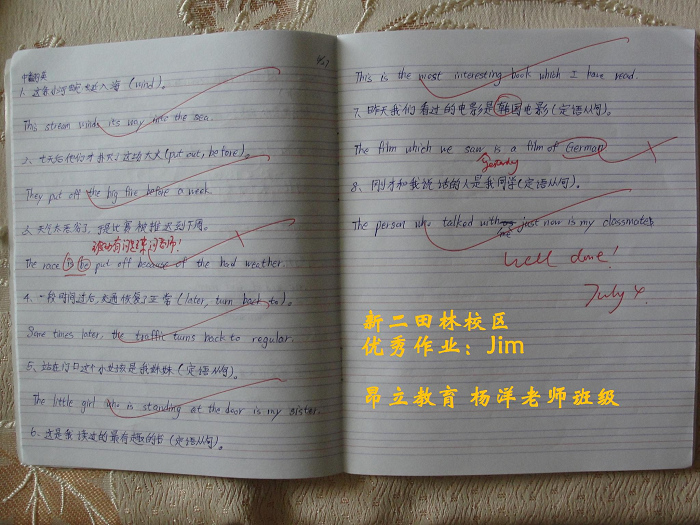 中翻英
1、这条小河蜿蜒进入海 (wind)。
This stream winds its way into the sea.
2、七天后他们才扑灭了这场大火(put out, before)。
They put off the big fire before a week.
3、天气太恶劣了，于是比赛被推迟到下周。
The race is be put off because of the bad weather.
4、一段时间过后,交通恢复了正常 (later, turn back to)。
Some times later, the traffic turns back to regular.
5、站在门口这个小女孩是我妹妹 (定语从句)。
The little girl who is standing at the door is my sister.
6、这是我读过的最有趣的书 (定语从句)。
This is the most interesting book which I have read.
7、昨天我们看过的电影是韩国电影 (定语从句)。
The film which we saw is a film of German
yesterday
8、刚才和我说话的人是我同学(定语从句)。
The person who talked with me just now is my classmate.
Well done!
July 4.
新二田林校区
优秀作业：Jim
昂立教育 杨洋老师班级